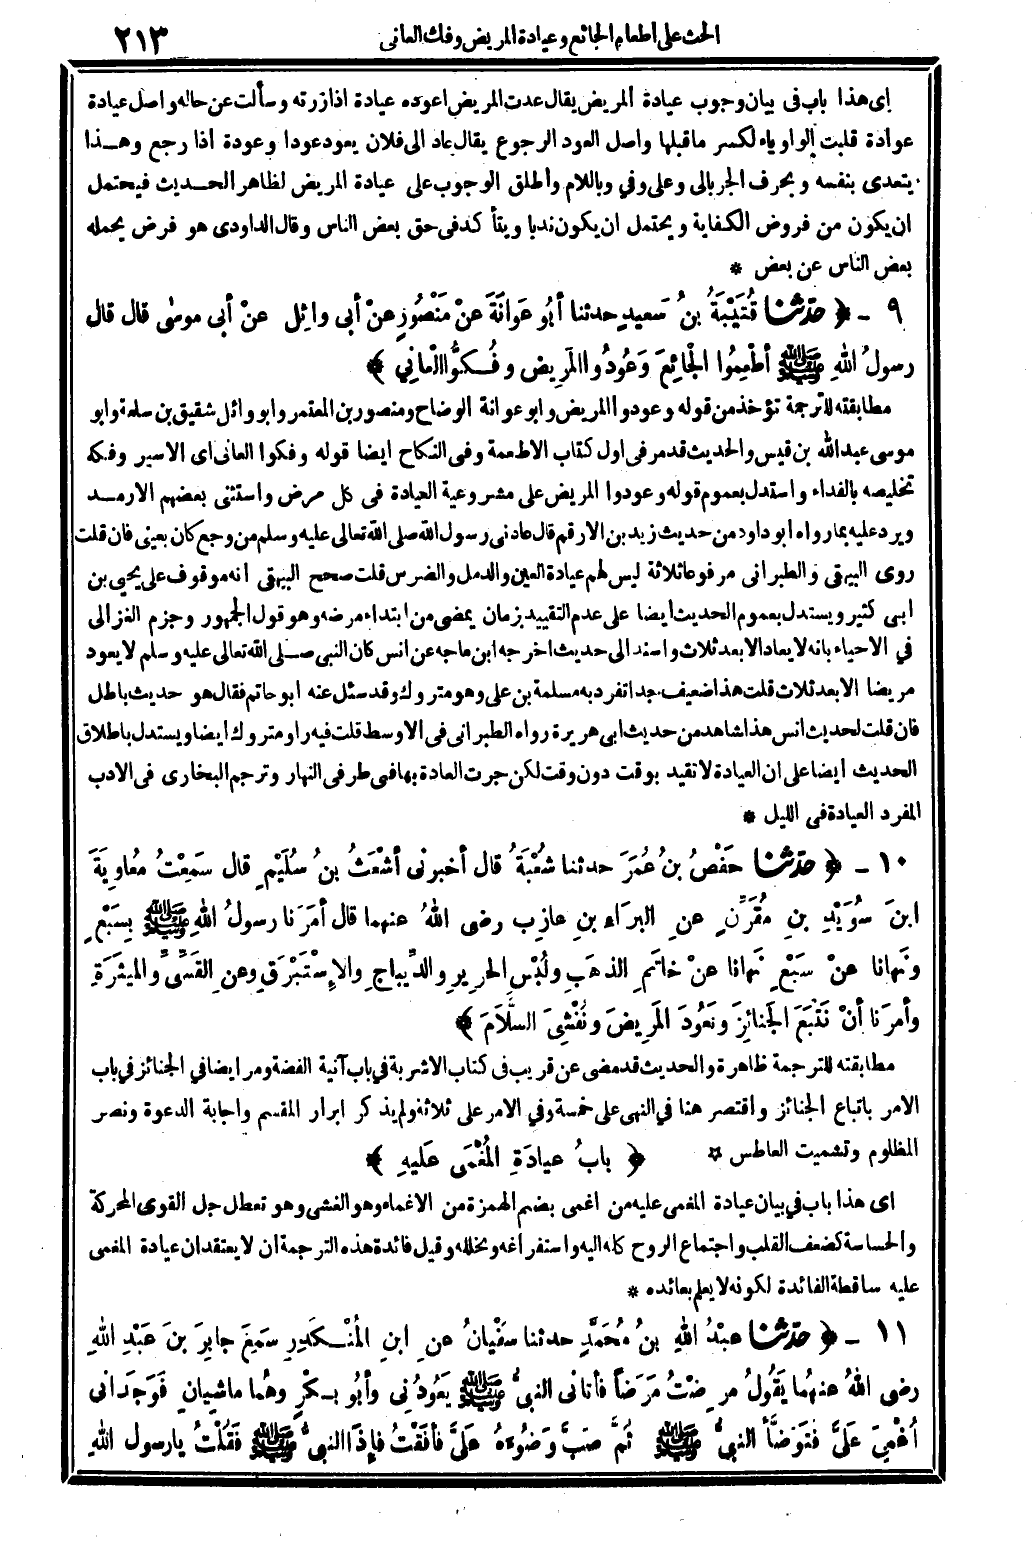 الحث على اطعام الجائع وعيادة المريض وفك العانى ٢١٣
اى هذا باب فى بيان وجوب عيادة المريض يقال عدت المريض اعوده عيادة اذا زرته وسألت عن حاله واصل عيادة
عوادة قلبت الواو ياء لكسر ما قبلها واصل العود الرجوع يقال عاد الى فلان يعود عودا وعودة اذا رجع وهذا
يتعدى بنفسه وبحرف الجر بالى وعلى وفي وباللام وأطلق الوجوب على عيادة المريض لظاهر الحديث فيحتمل
ان يكون من فروض الكفاية ويحتمل ان يكون ندبا ويتأكد فى حق بعض الناس وقال الداودى هو فرض يحمله
بعض الناس عن بعض *
٩ - ﴿ حدّثنا قُتَيْبَةُ بنُ سَعيدٍ حدثنا أبُو عَوانَةَ عنْ مَنْصُورٍ عنْ أبى وائِل عنْ أبى موسٰى قال قال
رسولُ اللهِ ﷺ أطْعِمُوا الْجائِعَ وَعُودُوا المَريضَ وفُكُّوا الْعانِي ﴾
مطابقته للترجمة تؤخذ من قوله وعودوا المريض وابو عوانة الوضاح ومنصور بن المعتمر وابو وائل شقيق بن سلمة وابو
موسى عبد الله بن قيس والحديث قد مر فى اول كتاب الاطعمة وفى النكاح ايضا قوله وفكوا العانى اى الاسير وفكه
تخليصه بالفداء واستدل بعموم قوله وعودوا المريض على مشروعية العيادة فى كل مرض واستثنى بعضهم الارمد
ويرد عليه بما رواه ابو داود من حديث زيد بن الارقم قال عادنى رسول الله صلى الله تعالى عليه وسلم من وجع كان بعينى فان قلت
روى البيهقى والطبرانى مرفوعا ثلاثة ليس لهم عيادة العين والدمل والضرس قلت صحح البيهقى انه موقوف على يحيى بن
ابى كثير ويستدل بعموم الحديث أيضا على عدم التقييد بزمان يمضى من ابتداء مرضه وهو قول الجمهور وجزم الغزالى
في الاحياء بانه لا يعاد الا بعد ثلاث واستند الى حديث اخرجه ابن ماجه عن انس كان النبى صلى الله تعالى عليه وسلم لا يعود
مريضا الا بعد ثلاث قلت هذا ضعيف جدا تفرد به مسلمة بن على وهو متروك وقد سئل عنه ابو حاتم فقال هو حديث باطل
فان قلت لحديث انس هذا شاهد من حديث ابى هريرة رواه الطبرانى فى الاوسط قلت فيه راو متروك ايضا ويستدل باطلاق
الحديث ايضا على ان العيادة لا تقيد بوقت دون وقت لكن جرت العادة بها فى طرفى النهار وترجم البخارى فى الادب
المفرد العيادة فى الليل *
١٠ - ﴿ حدّثنا حَفْصُ بنُ عُمَرَ حدثنا شُعْبَةُ قال أخبرنى أشْعَثُ بنُ سُلَيْمٍ قال سَمِعْتُ مُعاوِيَةَ
ابنَ سُوَيْدِ بنِ مُقَرِّنٍ عنِ البَرَاءِ بنِ عازِبٍ رضى اللهُ عنهما قال أمَرَنا رسولُ اللهِ ﷺ بِسَبْعٍ
ونَهانا عنْ سَبْعٍ نَهانا عنْ خاتَمِ الذهَبِ ولُبْسِ الحَريرِ والدِّيباجِ والإسْتَبْرَقِ وعنِ القَسِّىِّ والمِيثَرَةِ
وأمرَنا أنْ نَتْبَعَ الجَنائِزَ ونَعُودَ المَريضَ ونُفْشِىَ السَّلَامَ ﴾
مطابقته للترجمة ظاهرة والحديث قد مضى عن قريب فى كتاب الاشربة في باب آنية الفضة ومر ايضا في الجنائز في باب
الامر باتباع الجنائز واقتصر هنا في النهى على خمسة وفي الامر على ثلاثة ولم يذكر ابرار المقسم واجابة الدعوة ونصر
المظلوم وتشميت العاطس *
﴿ بابُ عيادَةِ المُغْمَى عَلَيهِ ﴾
اى هذا باب في بيان عيادة المغمى عليه من اغمى بضم الهمزة من الاغماء وهو الغشى وهو تعطل جل القوى المحركة
والحساسة كضعف القلب واجتماع الروح كله اليه واستفراغه وتخلله وقيل فائدة هذه الترجمة ان لا يعتقد ان عيادة المغمى
عليه ساقطة الفائدة لكونه لا يعلم بعائده *
١١ - ﴿ حدّثنا عبْدُ اللهِ بنُ مُحَمَّدٍ حدثنا سفْيانُ عنِ ابنِ المُنْكَدِرِ سَمِعَ جابِرَ بنَ عَبْدِ اللهِ
رضى اللهُ عنهُما يَقُولُ مرِضْتُ مَرَضاً فأتانى النبىُّ ﷺ يَعُودُنِى وأبُو بَكْرٍ وهُما ماشِيانِ فَوَجَدَانى
أُغْمِىَ عَلَىَّ فَتَوَضَّأَ النبىُّ ﷺ ثُمَّ صَبَّ وَضُوءَهُ عَلَىَّ فأفَقْتُ فإذَا النبىُّ ﷺ فَقُلْتُ يارسول اللهِ